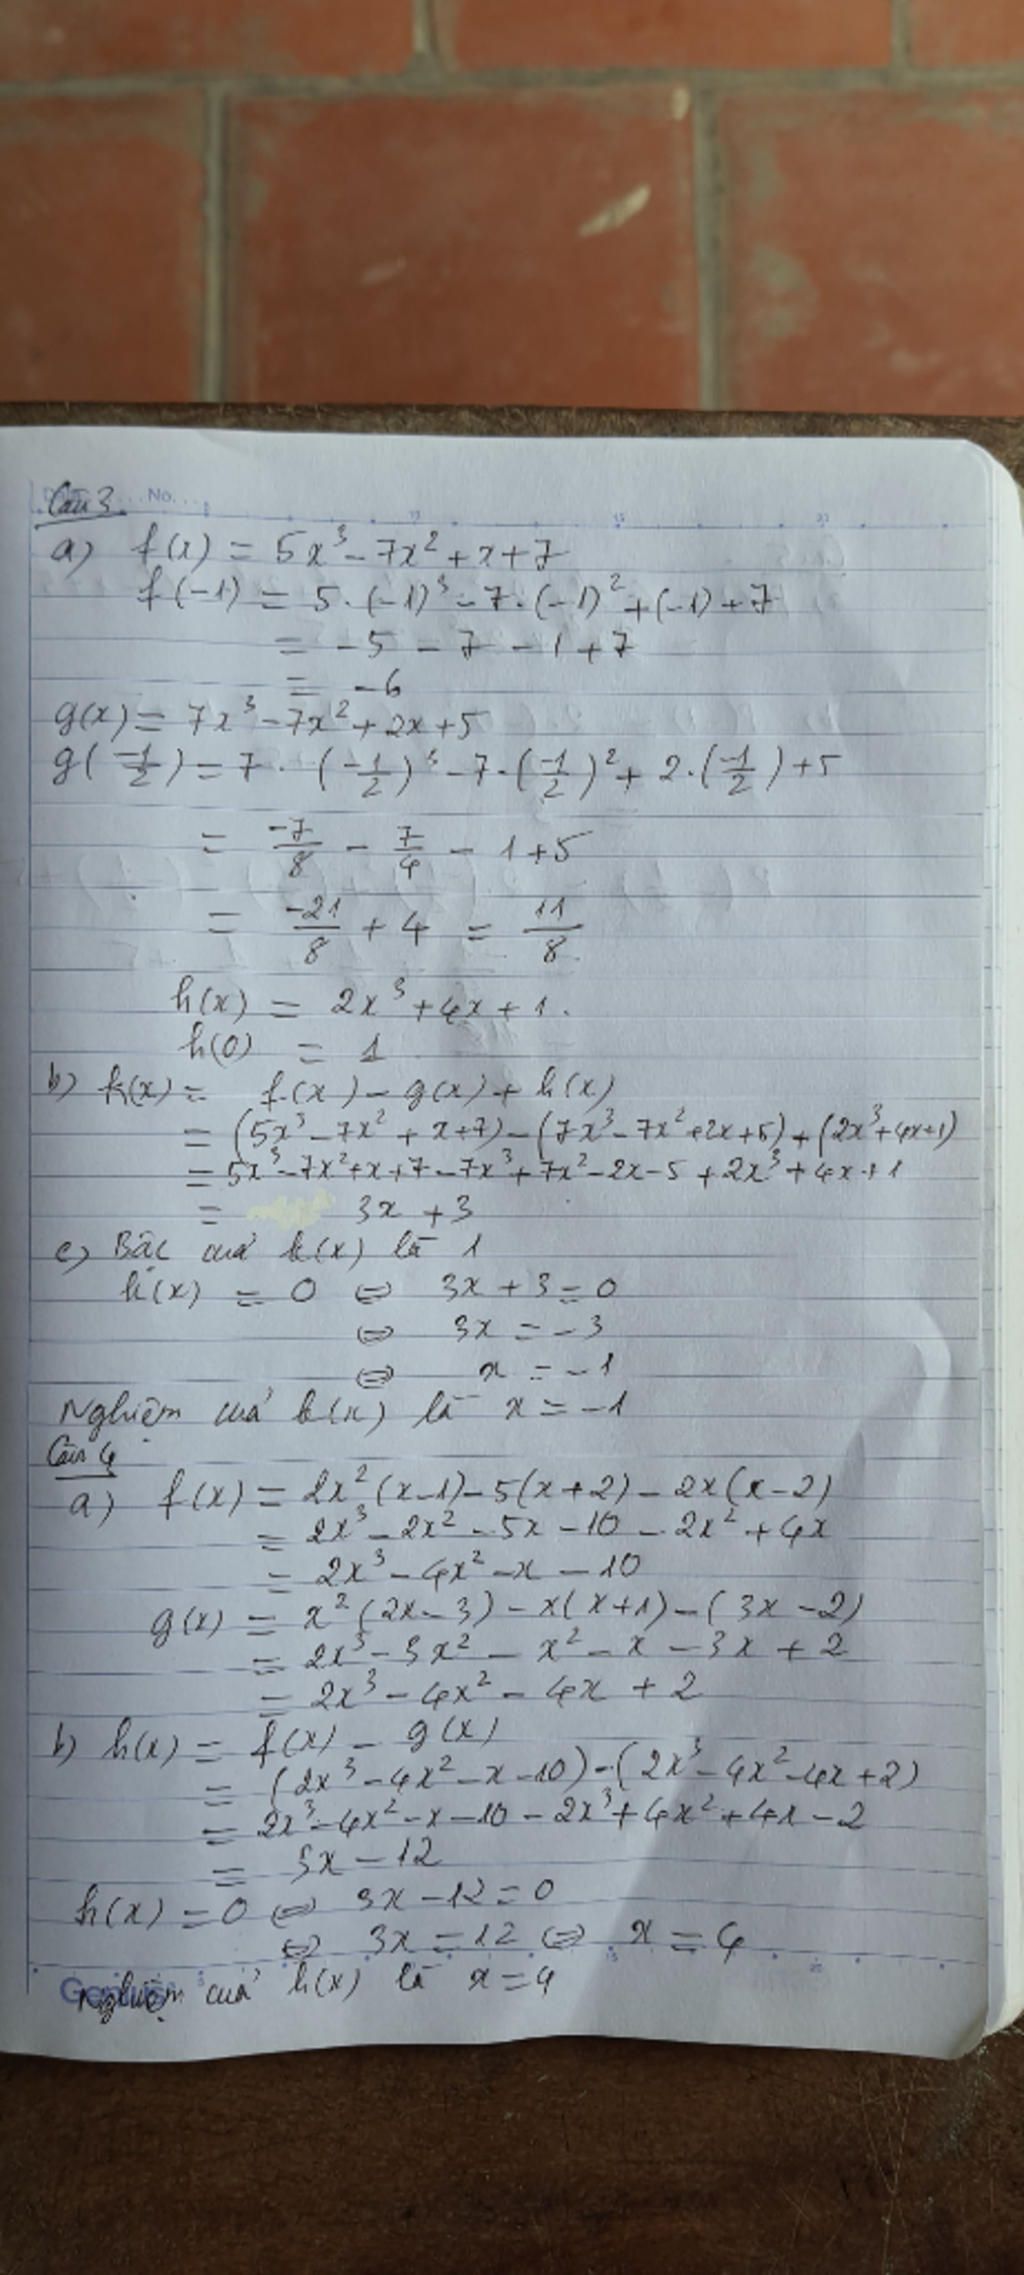 Câu 3. No...
a) f(x) = 5x³ - 7x² + x + 7
f(-1) = 5.(-1)³ - 7.(-1)² + (-1) + 7
= -5 - 7 - 1 + 7
= -6
g(x) = 7x³ - 7x² + 2x + 5
g(-1/2) = 7.(-1/2)³ - 7.(-1/2)² + 2.(-1/2) + 5
= -7/8 - 7/4 - 1 + 5
= -21/8 + 4 = 11/8
h(x) = 2x³ + 4x + 1.
h(0) = 1
b) k(x) = f(x) - g(x) + h(x)
= (5x³ - 7x² + x + 7) - (7x³ - 7x² + 2x + 5) + (2x³ + 4x + 1)
= 5x³ - 7x² + x + 7 - 7x³ + 7x² - 2x - 5 + 2x³ + 4x + 1
= 3x + 3
c) Bậc của k(x) là 1
k(x) = 0 ⇔ 3x + 3 = 0
⇔ 3x = -3
⇔ x = -1
Nghiệm của k(x) là x = -1
Câu 4
a) f(x) = 2x²(x-1) - 5(x+2) - 2x(x-2)
= 2x³ - 2x² - 5x - 10 - 2x² + 4x
= 2x³ - 4x² - x - 10
g(x) = x²(2x-3) - x(x+1) - (3x-2)
= 2x³ - 3x² - x² - x - 3x + 2
= 2x³ - 4x² - 4x + 2
b) h(x) = f(x) - g(x)
= (2x³ - 4x² - x - 10) - (2x³ - 4x² - 4x + 2)
= 2x³ - 4x² - x - 10 - 2x³ + 4x² + 4x - 2
= 3x - 12
h(x) = 0 ⇔ 3x - 12 = 0
⇔ 3x = 12 ⇔ x = 4
Nghiệm của h(x) là x = 4